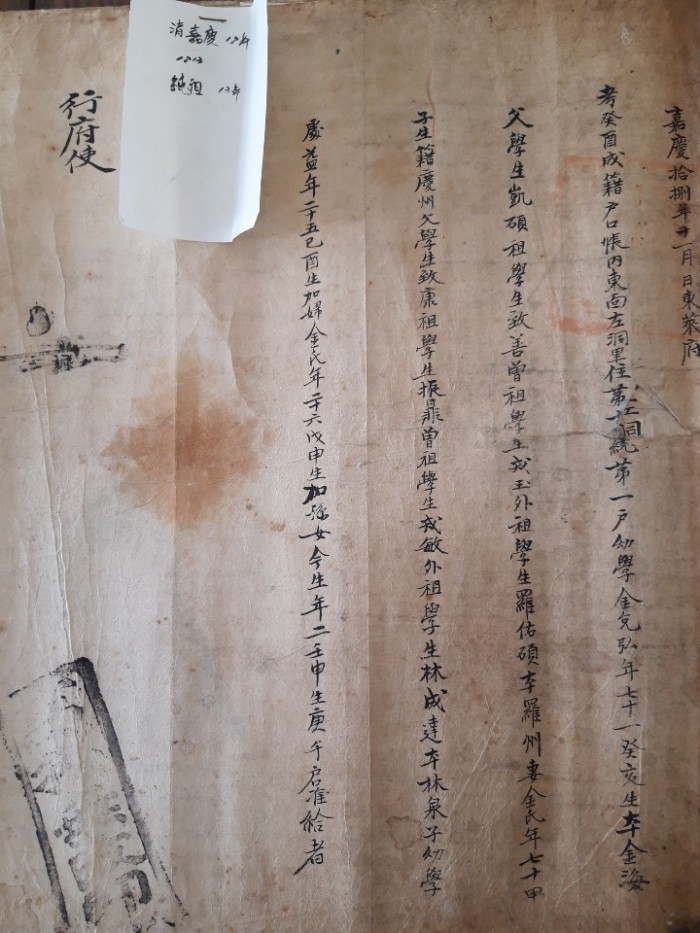 嘉慶拾捌年 月 日東萊府
考癸酉成籍戶口帳內東面左洞里住第 統第一戶幼學金兌弘年七十一癸亥生本金海
父學生凱碩祖學生致善曾祖學生 玉外祖學生羅佑碩本羅州妻金氏年七十甲
子生籍慶州父學生致康祖學生振 曾祖學生 敏外祖學生林成達本林泉子幼學
處益年二十五己酉生加婦金氏年二十六戊申生加孫女今生年二壬申生庚午戶准給者
行府使
清嘉慶 18年
1813
純祖 13年